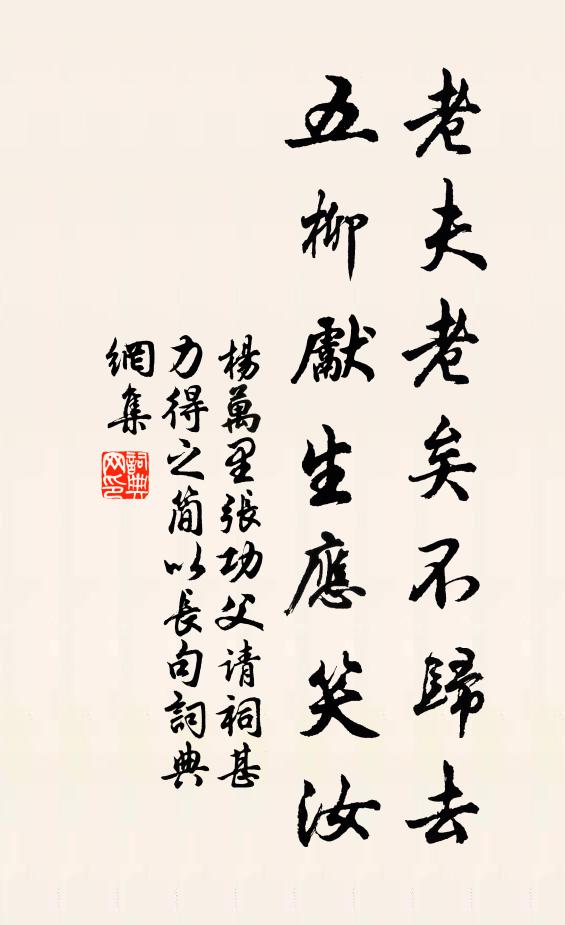 老夫老矣不歸去
五柳獻生應笑汝
楊萬里張功父请祠甚
力得之简以長句詞典
網集
詞典
网印